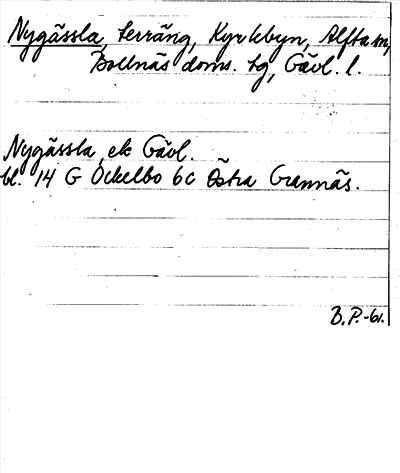 Nygässla, terräng, Kyrkbyn, Alfta sn,
Bollnäs doms. tg, Gävl. l.
Nygässla ek Gävl.
bl. 14 G Ockelbo 6c Östra Grannäs.
B.P.-61.